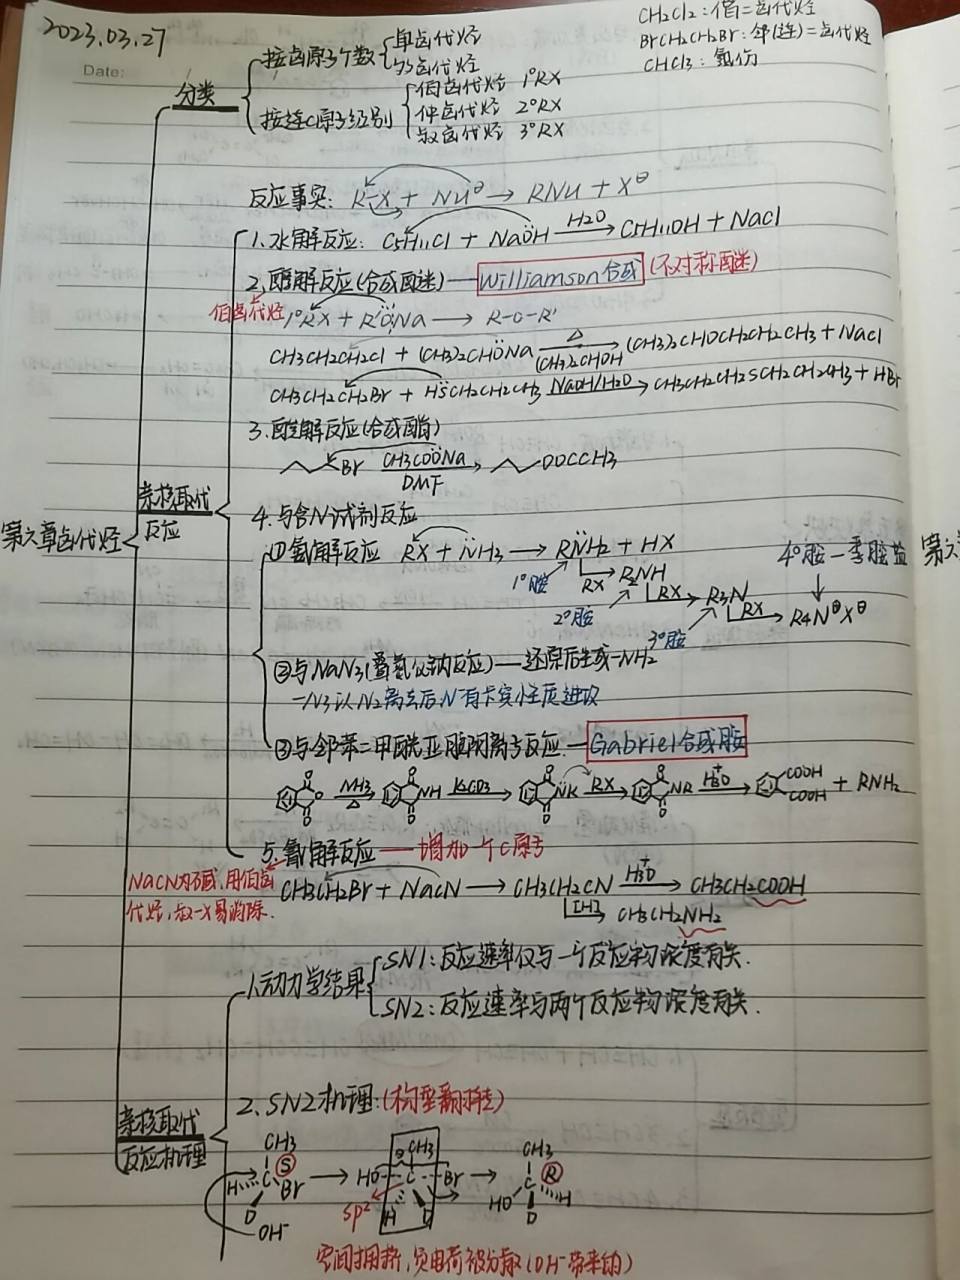 2023.03.27
Date:
CH2Cl2：偕二卤代烃
BrCH2CH2Br：邻(连)二卤代烃
CHCl3：氯仿
第六章卤代烃
分类
按卤原子个数
单卤代烃
多卤代烃
按连C原子级别
伯卤代烃 1°RX
仲卤代烃 2°RX
叔卤代烃 3°RX
亲核取代
反应
反应事实：R-X + Nu⊖ → RNu + X⊖
1.水解反应：C5H11Cl + NaOH H2O→ C5H11OH + NaCl
2.醇解反应(合成醚)—Williamson合成(不对称醚)
伯卤代烃
1°RX + R'ONa → R-O-R'
CH3CH2CH2Cl + (CH3)2CHONa △ (CH3)2CHOH→ (CH3)2CHOCH2CH2CH3 + NaCl
CH3CH2CH2Br + HSCH2CH2CH3 NaOH/H2O→ CH3CH2CH2SCH2CH2CH3 + HBr
3.酸解反应(合成酯)
Br CH3COONa DMF→ OOCCH3
4.与含N试剂反应
①氨解反应 RX + NH3 → RNH2 + HX
1°胺 RX→ R2NH
2°胺 RX→ R3N
3°胺 RX→ R4N⊕X⊖
4°胺—季胺盐
第六
②与NaN3(叠氮化钠反应)—还原后生成-NH2
-N3以N2离去后，N有卡宾性质进攻
③与邻苯二甲酰亚胺阴离子反应—Gabriel合成胺
O O O NH3 △→ O NH O K2CO3→ O NK O RX→ O NR O H3O+→ COOH COOH + RNH2
5.氰解反应—增加一个C原子
NaCN内碱，用伯卤
代烃，叔-X易消除.
CH3CH2Br + NaCN → CH3CH2CN H3O+→ CH3CH2COOH
[H]→ CH3CH2NH2
亲核取代
反应机理
1.动力学结果
SN1：反应速率仅与一个反应物浓度有关.
SN2：反应速率与两个反应物浓度有关.
2.SN2机理：(构型翻转)
CH3 S H C Br D OH-
→ CH3 HO C Br H D sp2
→ CH3 R HO C H D
空间拥挤，负电荷被分散(OH-带来的)